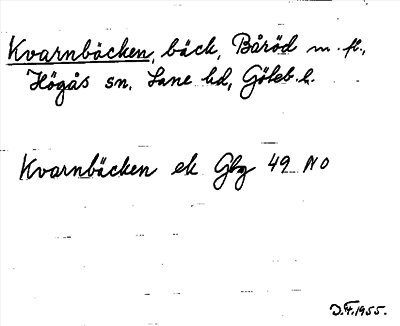 Kvarnbäcken, bäck, Båröd m. fl.,
Högås sn, Lane hd, Göteb. l.
Kvarnbäcken ek Gbg 49 NO
D.F. 1955.